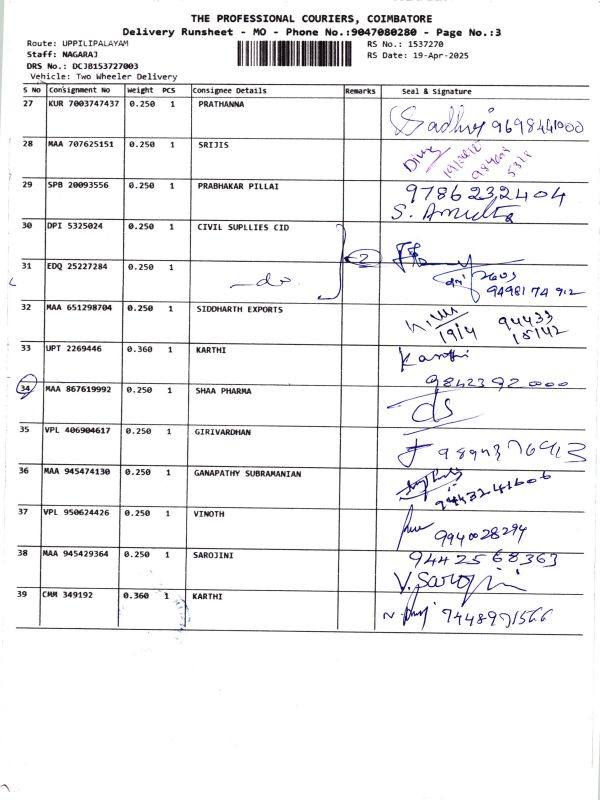 THE PROFESSIONAL COURIERS, COIMBATORE
Delivery Runsheet - MO - Phone No.:9047080280 - Page No.:3
Route: UPPILIPALAYAM
RS No.: 1537270
Staff: NAGARAJ
RS Date: 19-Apr-2025
DRS No.: DCJB153727003
Vehicle: Two Wheeler Delivery
S No Consignment No Weight PCS Consignee Details Remarks Seal & Signature
27 KUR 7003747437 0.250 1 PRATHANNA
9698441000
28 MAA 707625151 0.250 1 SRIJIS
29 SPB 20093556 0.250 1 PRABHAKAR PILLAI 9786232404
S. Amudha
30 DPI 5325024 0.250 1 CIVIL SUPLLIES CID
2
31 EDQ 25227284 0.250 1 -do-
9498174912
32 MAA 651298704 0.250 1 SIDDHARTH EXPORTS
19/4 94433
15142
33 UPT 2269446 0.360 1 KARTHI Karthi
9842392000
34 MAA 867619992 0.250 1 SHAA PHARMA
35 VPL 406904617 0.250 1 GIRIVARDHAN
9894376913
36 MAA 945474130 0.250 1 GANAPATHY SUBRAMANIAN
9443241606
37 VPL 950624426 0.250 1 VINOTH
9940028294
38 MAA 945429364 0.250 1 SAROJINI 9442568363
V. Sarojini
39 CMM 349192 0.360 1 KARTHI
9448971566